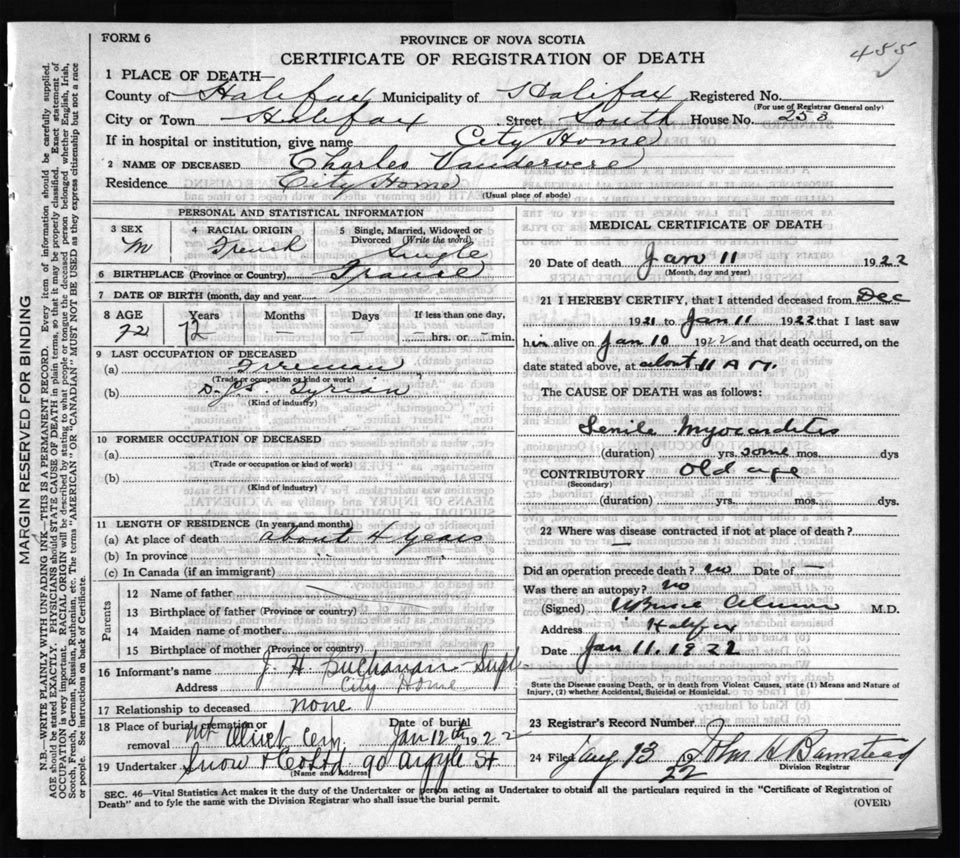 FORM 6
PROVINCE OF NOVA SCOTIA
455
CERTIFICATE OF REGISTRATION OF DEATH
1 PLACE OF DEATH
County of Halifax Municipality of Halifax Registered No.
(For use of Registrar General only)
City or Town Halifax Street South House No. 253
If in hospital or institution, give name City Home
2 NAME OF DECEASED Charles Vandervere
Residence City Home
(Usual place of abode)
PERSONAL AND STATISTICAL INFORMATION
3 SEX M
4 RACIAL ORIGIN French
5 Single, Married, Widowed or Divorced (Write the word) Single
6 BIRTHPLACE (Province or Country) France
7 DATE OF BIRTH (month, day and year)
8 AGE 72 Years 72 Months – Days – If less than one day, hrs. or min.
9 LAST OCCUPATION OF DECEASED
(a) Fireman
(Trade or occupation or kind of work)
(b) S.S. "Tyrian"
(Kind of industry)
10 FORMER OCCUPATION OF DECEASED
(a)
(Trade or occupation or kind of work)
(b)
(Kind of industry)
11 LENGTH OF RESIDENCE (In years and months)
(a) At place of death about 4 years
(b) In province " "
(c) In Canada (if an immigrant)
Parents
12 Name of father
13 Birthplace of father (Province or country)
14 Maiden name of mother
15 Birthplace of mother (Province or country)
16 Informant's name J. H. Buchanan Supt
Address City Home
17 Relationship to deceased none
18 Place of burial, cremation or removal Mt Olivet Cem Date of burial Jan 12th 1922
19 Undertaker Snow & Co Ltd 90 Argyle St
(Name and Address)
MEDICAL CERTIFICATE OF DEATH
20 Date of death Jan 11 1922
(Month, day and year)
21 I HEREBY CERTIFY, that I attended deceased from Dec
1921 to Jan 11 1922 that I last saw
him alive on Jan 10 1922 and that death occurred, on the
date stated above, at about 11 A M.
The CAUSE OF DEATH was as follows:
Senile Myocarditis
(duration) yrs. some mos. dys
CONTRIBUTORY Old age
(Secondary)
(duration) yrs. mos. dys.
22 Where was disease contracted if not at place of death?
—
Did an operation precede death? no Date of —
Was there an autopsy? no
(Signed) M.D.
Address Halifax
Date Jan 11. 1922
State the Disease causing Death, or in death from Violent Causes, state (1) Means and Nature of Injury, (2) whether Accidental, Suicidal or Homicidal.
23 Registrar's Record Number
24 Filed Jany 13 22 John H Barnstead
Division Registrar
SEC. 46—Vital Statistics Act makes it the duty of the Undertaker or person acting as Undertaker to obtain all the particulars required in the "Certificate of Registration of
Death" and to file the same with the Division Registrar who shall issue the burial permit.
(OVER)
MARGIN RESERVED FOR BINDING
N.B.—WRITE PLAINLY WITH UNFADING INK—THIS IS A PERMANENT RECORD. Every item of information should be carefully supplied.
AGE should be stated EXACTLY. PHYSICIANS should STATE CAUSE OF DEATH in plain terms, so that it may be properly classified. Exact statement of
OCCUPATION is very important. RACIAL ORIGIN will be described by stating to what people or tongue the deceased person belonged whether English, Irish,
Scotch, French, German, Russian, Ruthenian, etc. The terms "AMERICAN" OR "CANADIAN" MUST NOT BE USED as they express citizenship but not a race
or people. See instructions on back of Certificate.